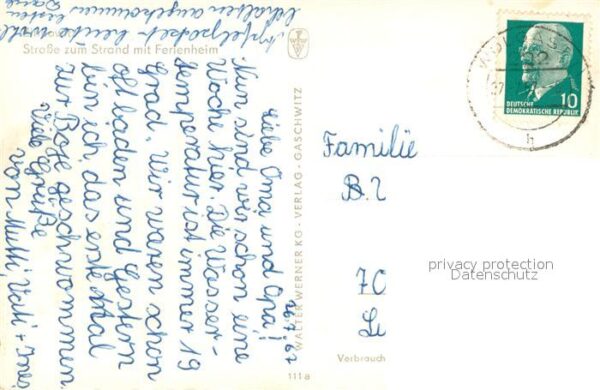 Apfelpaket heute wohl-
behalten angekommen besten
Dank
Straße zum Strand mit Ferienheim
26.7.67
Liebe Oma und Opa!
Nun sind wir schon eine
Woche hier. Die Wasser-
temperatur ist immer 19
Grad. Wir waren schon
oft baden und Gestern
bin ich das erste Mal
zur Boje geschwommen
Viele Grüße
von Mutti, Vati + Ines
WALTER WERNER KG · VERLAG · GASCHWITZ
111 a
DEUTSCHE
DEMOKRATISCHE REPUBLIK
10
h
Familie
B.
70
Le
Verbrauch
privacy protection
Datenschutz